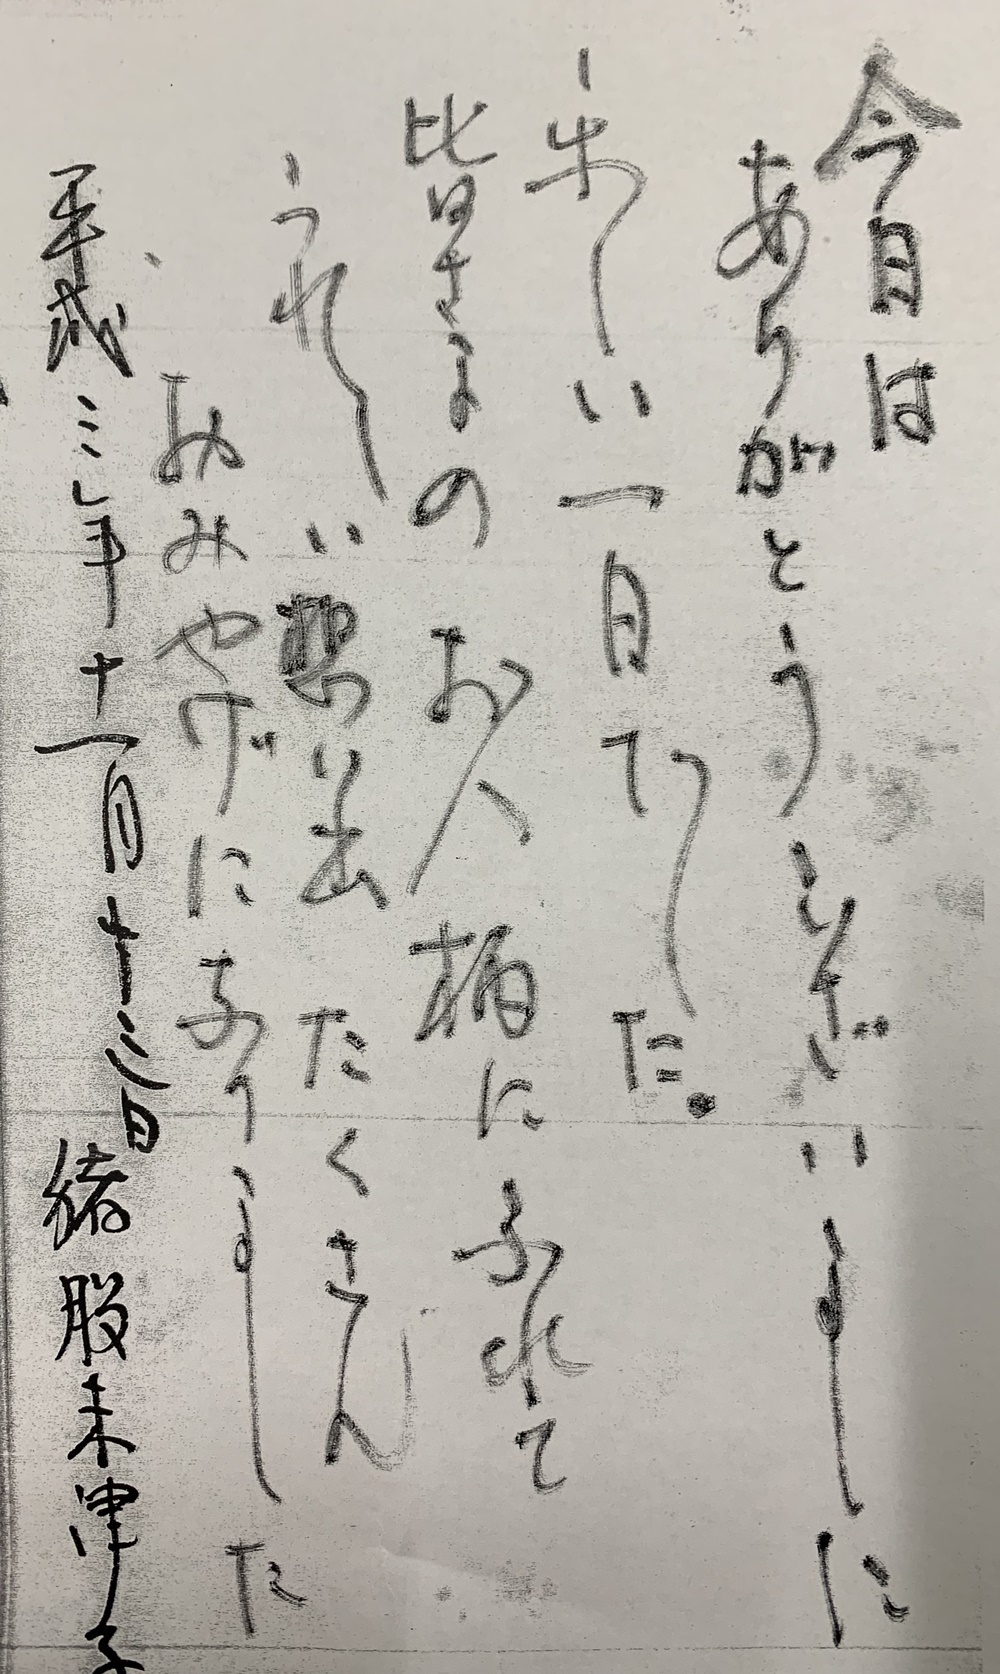 今日は
ありがとうございました
楽しい一日でした。
皆さまのお人柄にふれて
うれしい想い出たくさん
おみやげになりました
平成三年十一月十三日 猪股末津子